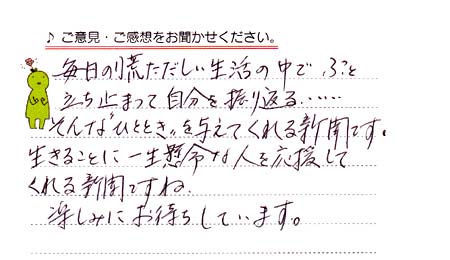 ♪ ご意見・ご感想をお聞かせください。
毎日の慌ただしい生活の中で ふと
立ち止まって自分を振り返る……
そんな"ひととき"を与えてくれる新聞です。
生きることに一生懸命な人を応援して
くれる新聞ですね
楽しみにお待ちしています。